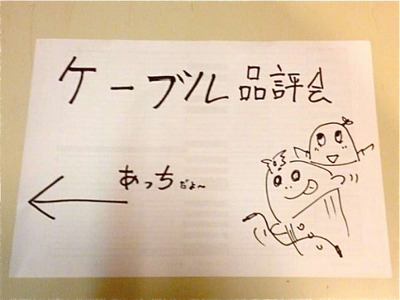 ケーブル品評会
あっちだよ～